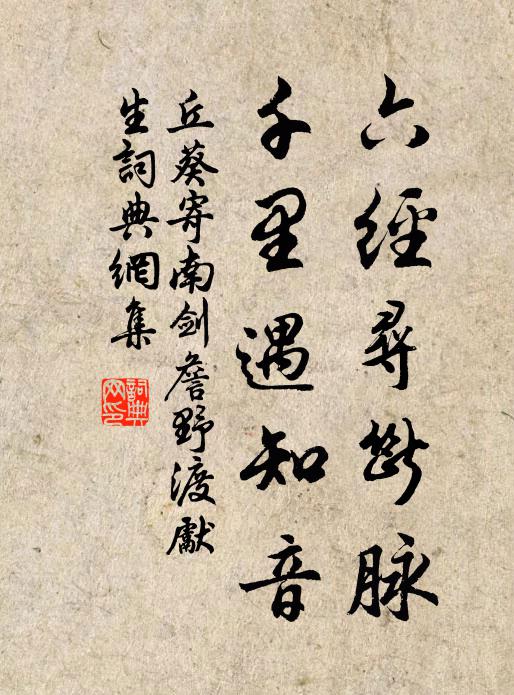 六經尋斷脉
千里遇知音
丘葵寄南劍詹野渡獻
生詞典網集
詞典
网印